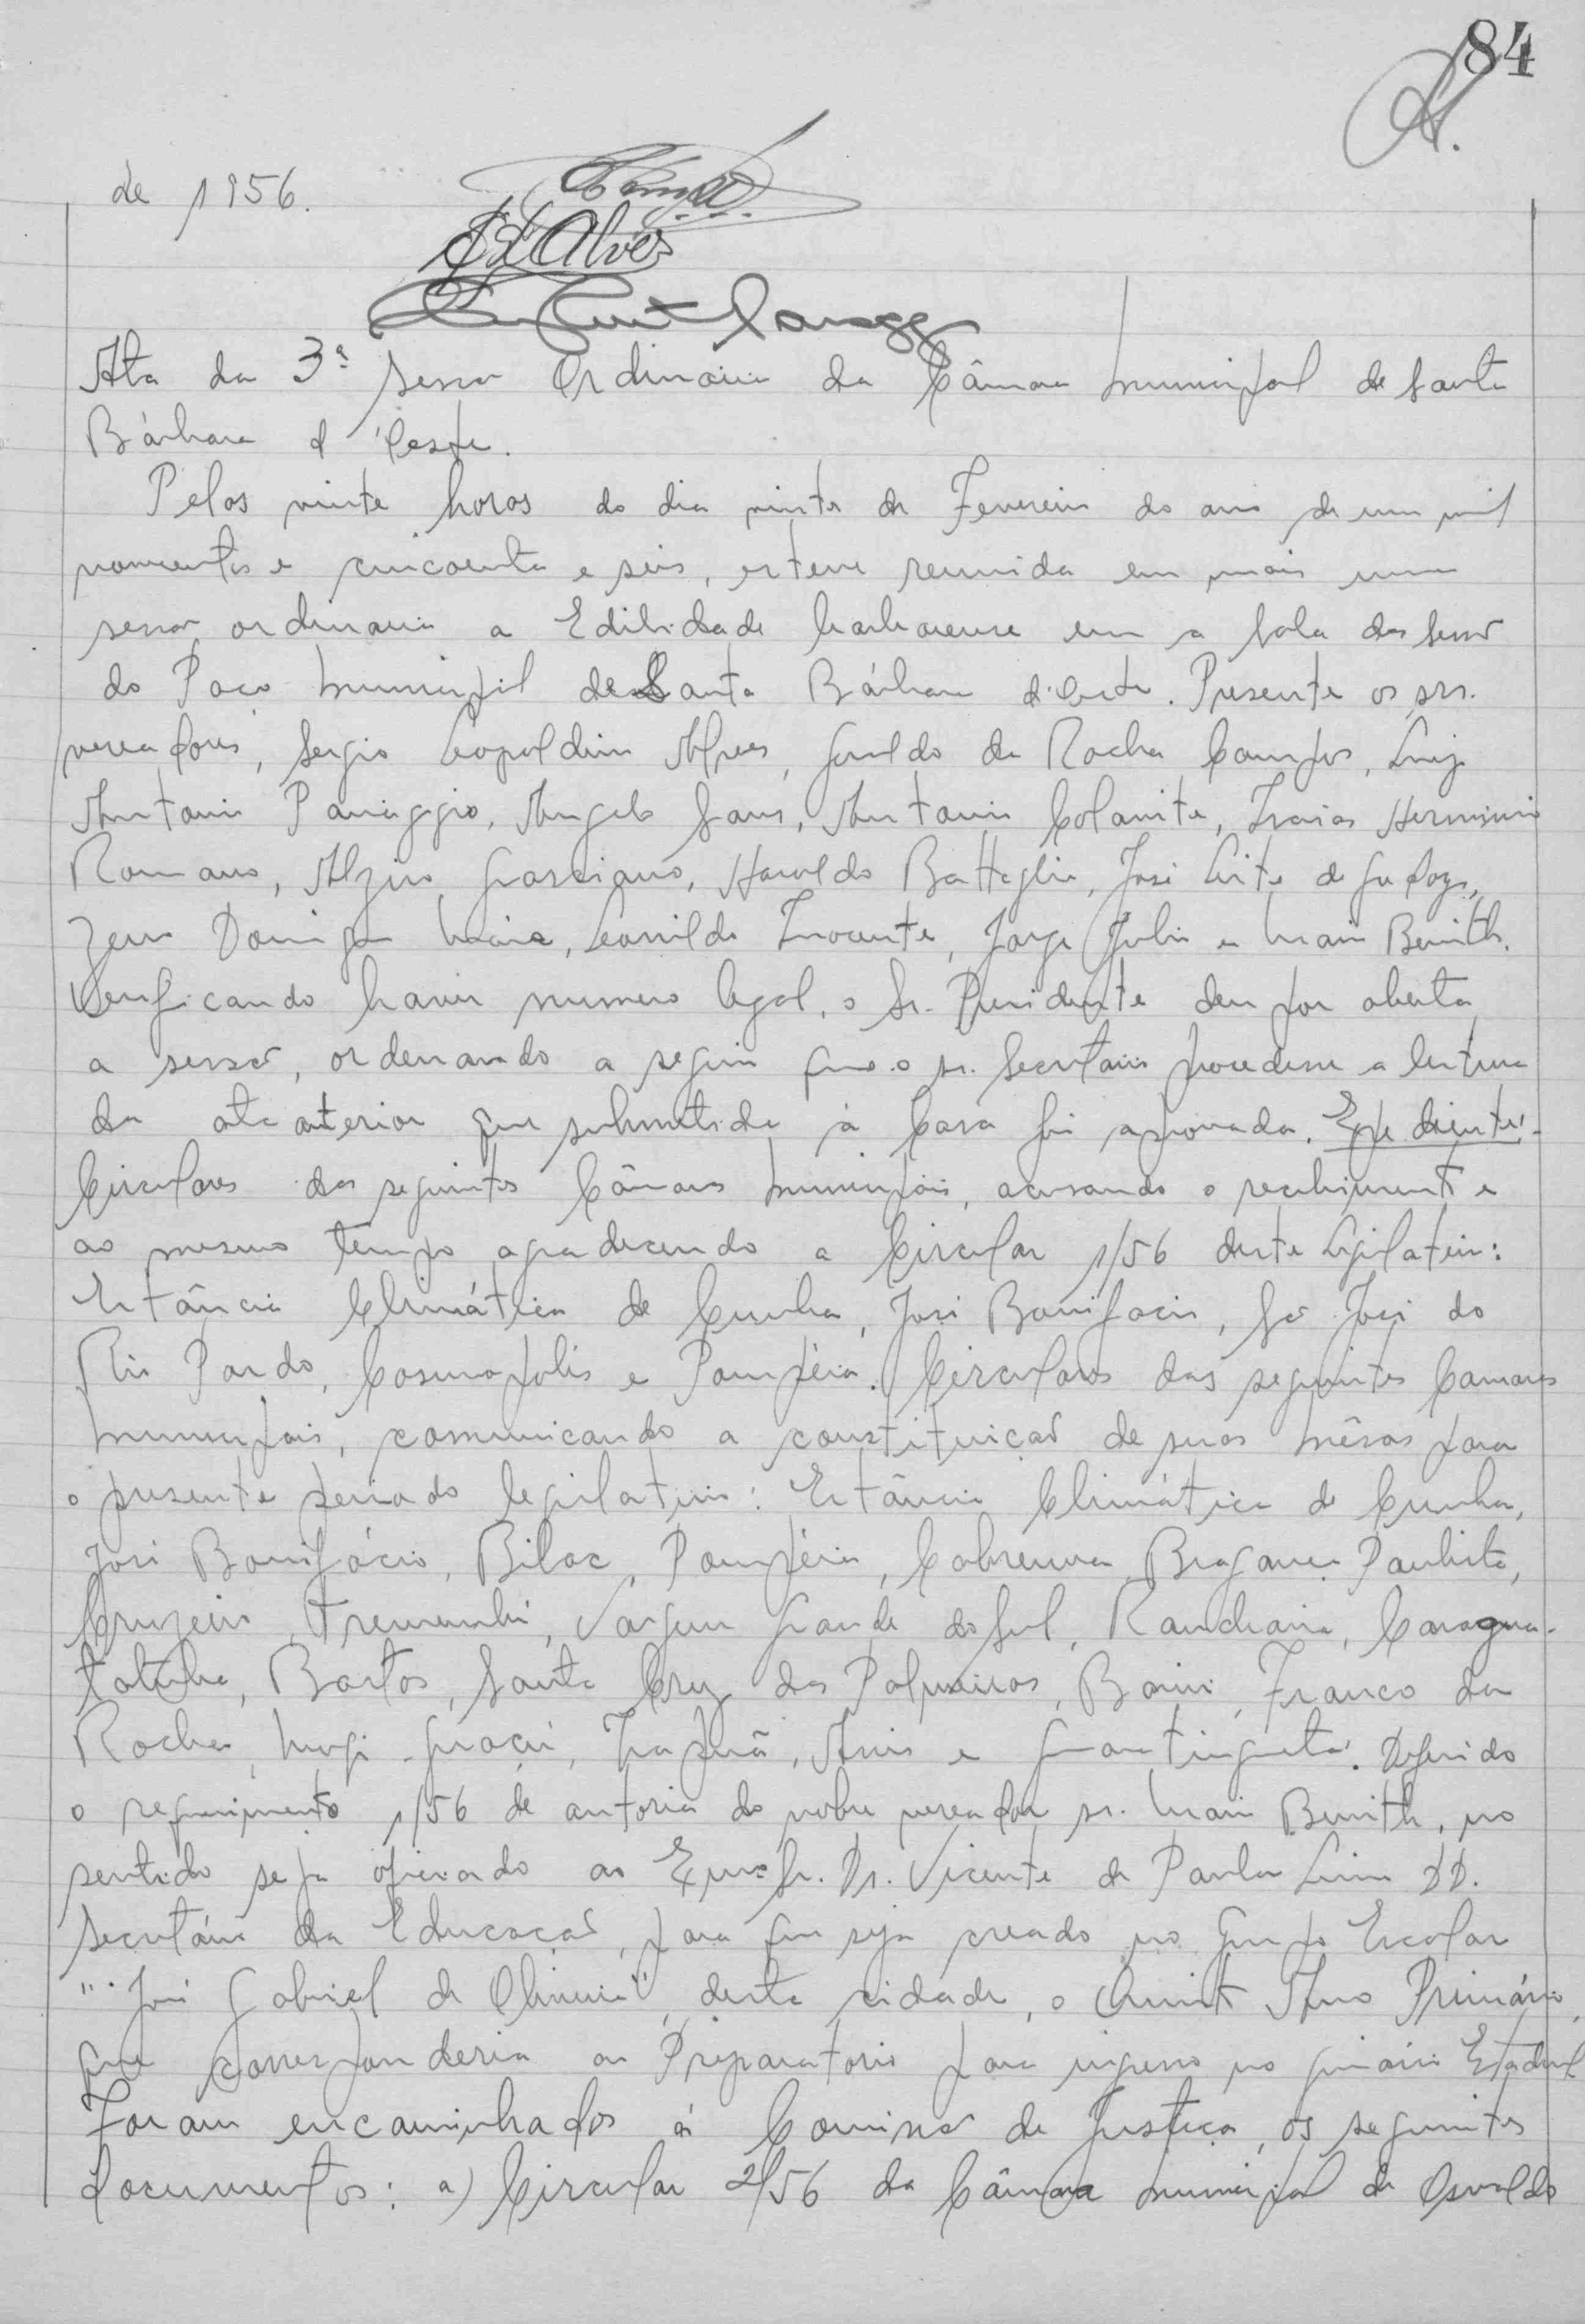 84
de 1956.
S L Alves
Ata da 3ª sessão Ordinaria da Câmara Municipal de Santa
Bárbara d'Oeste.
Pelas vinte horas do dia vinte de Fevereiro do ano de um mil
novecentos e cincoenta e seis, esteve reunida em mais uma
sessão ordinaria a Edilidade barbarense em a Sala das Sessões
do Paço Municipal de Santa Bárbara d'Oeste. Presente os srs.
vereadores, Sergio Leopoldino Alves, Geraldo da Rocha Campos, Luiz
Antonio Panaggio, Angelo Sans, Antonio Colamite, Isaias Herminio
Romano, Alziro Grasciano, Haroldo Battaglia, José Leite de Godoy,
Zeno Domingos Maia, Leonildo Inocente, Jorge Julio e Irani Benith.
Verificando haver numero legal, o Sr. Presidente deu por aberta
a sessão, ordenando a seguir que o sr. Secretario procedesse a leitura
da ata anterior que submetida à Casa foi aprovada. Expediente:-
Circulares das seguintes Câmaras Municipais, acusando o recebimento e
ao mesmo tempo agradecendo a Circular 1/56 deste Legislativo:
Estância Climática de Cunha, José Bonifacio, São José do
Rio Pardo, Cosmopolis e Pompéia. Circulares das seguintes Camaras
Municipais, comunicando a constituição de suas mêsas para
o presente periodo legislativo: Estância Climática de Cunha,
José Bonifácio, Bilac, Pompéia, Cabreuva, Bragança Paulista,
Cruzeiro, Tremembé, Vargem Grande do Sul, Rancharia, Caragua-
tatuba, Bastos, Santa Cruz das Palmeiras, Bariri, Franco da
Rocha, Mogi-Guaçú, Irapuã, Assis e Guaratinguetá. Deferido
o requerimento 1/56 de autoria do nobre vereador sr. Irani Benith, no
sentido seja oficiado ao Exmo Sr. Dr. Vicente de Paula Lima DD.
Secretário da Educação, para que seja creado no Grupo Escolar
"José Gabriel de Oliveira", desta cidade, o Quinto Ano Primário,
que corresponderia ao Preparatorio para ingresso no ginásio Estadual
Foram encaminhados á Comissão de Justiça, os seguintes
documentos: a) Circular 2/56 da Câmara Municipal de Osvaldo